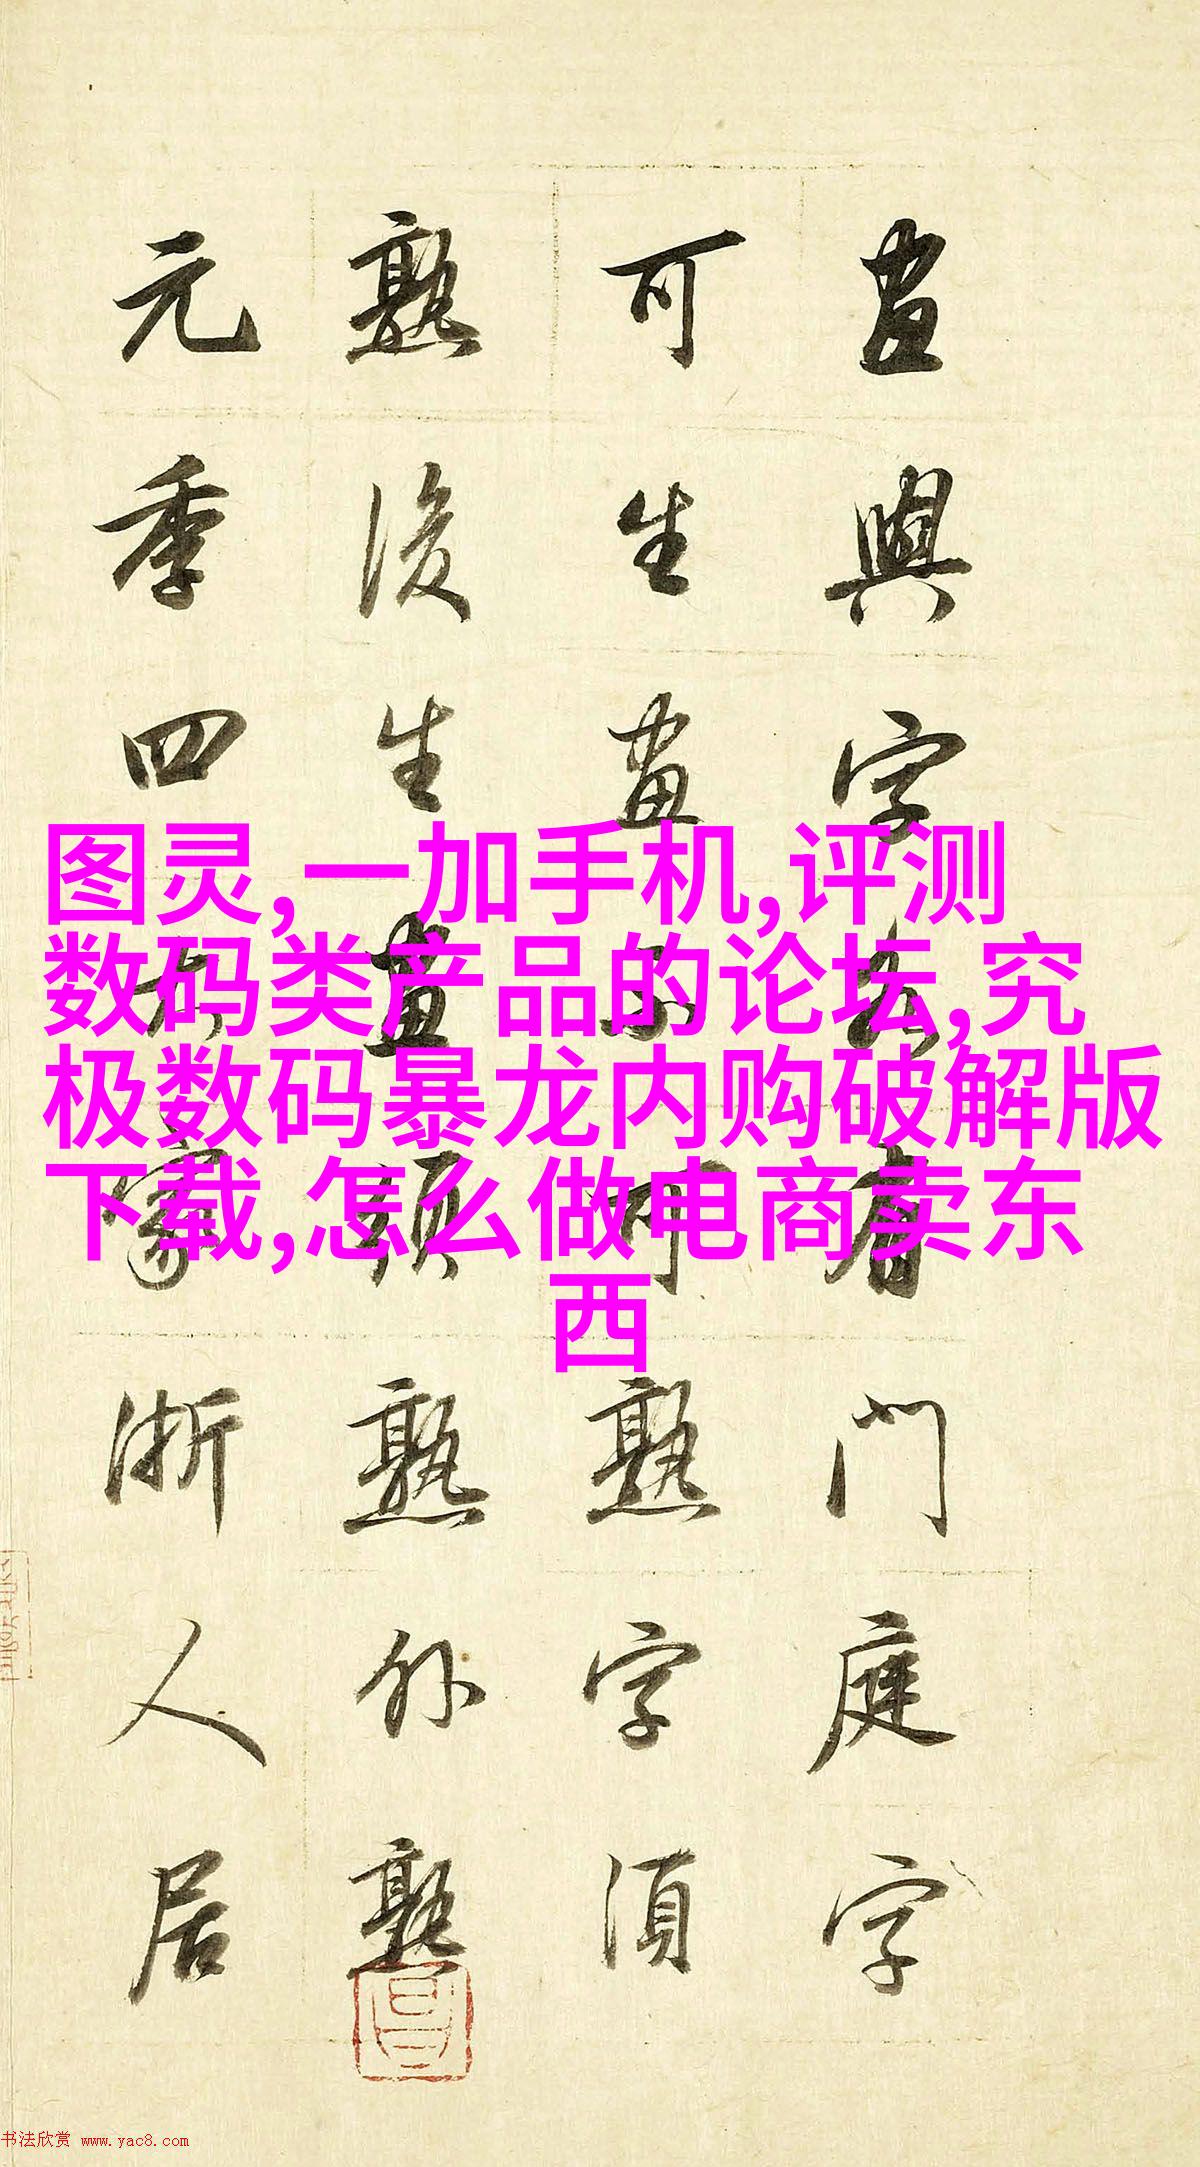 畫與字各有門庭字
可生畫不可熟字須
熟後生畫須熟外熟
元季四大家浙人居
图灵,一加手机,评测
数码类产品的论坛,究
极数码暴龙内购破解版
下载,怎么做电商卖东
西
书法欣赏 www.yac8.com